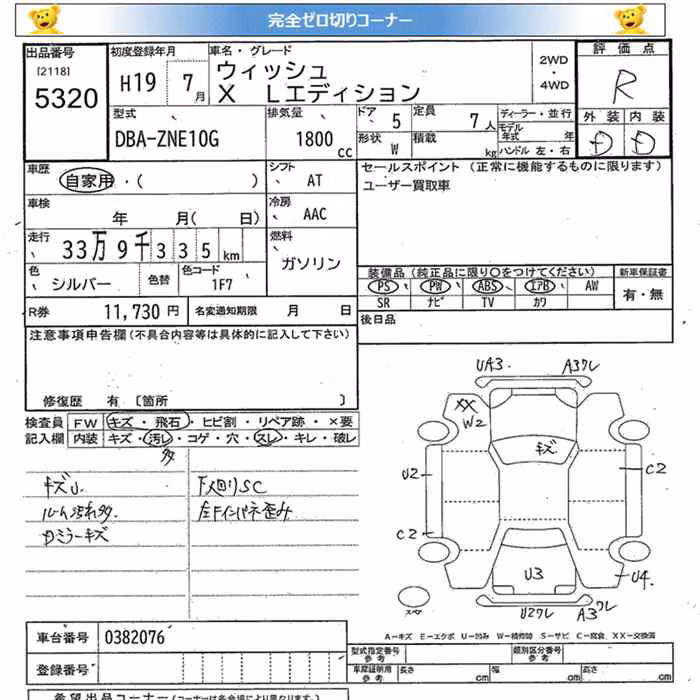 完全ゼロ切りコーナー
出品番号 初度登録年月 車名・グレード 評価点
[2118] 5320 H19 7月 ウィッシュ X Lエディション 2WD・4WD R
型式 排気量 ドア 5 定員 7人 ディーラー・並行 外装 内装
DBA-ZNE10G 1800cc 形状 W 積載 kg モデル年式 年 ハンドル 左・右 D D
車歴 自家用・( ) シフト AT セールスポイント(正常に機能するものに限ります)
ユーザー買取車
車検 年 月( 日) 冷房 AAC
走行 33万9千335km 燃料 ガソリン
色 シルバー 色替 色コード 1F7 装備品(純正品に限り○をつけてください) 新車保証書
PS PW ABS エアB AW 有・無
SR ナビ TV カワ
R券 11,730円 名変通知期限 月 日 後日品
注意事項申告欄(不具合内容等は具体的に記入して下さい)
修復歴 有〔箇所 〕
検査員 FW キズ・飛石・ヒビ割・リペア跡・×要
記入欄 内装 キズ・汚レ・コゲ・穴・スレ・キレ・破レ
多
キズU 下廻りSC
ルーム汚れ多 左Fインパネ歪み
Dミラーキズ
UA3 A3ワレ
XX W2
キズ
U2 C2
C2
U3 U4
U2ワレ A3ワレ
A-キズ E-エクボ U-凹み W-補修跡 S-サビ C-腐食 XX-交換済
車台番号 0382076 型式指定番号 参考 類別区分番号 参考
登録番号 車庫証明用 参考 長さ cm 幅 cm 高さ cm
希望出品コーナー(コーナーは各会場により異なります。)